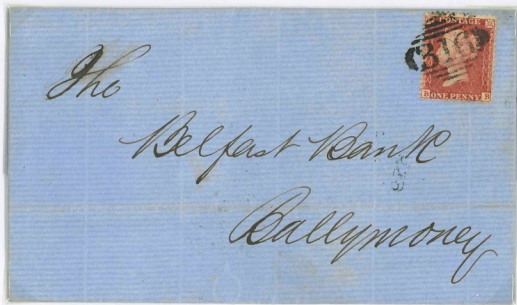 POSTAGE
316
B B
ONE PENNY
The
Belfast Bank
Ballymoney